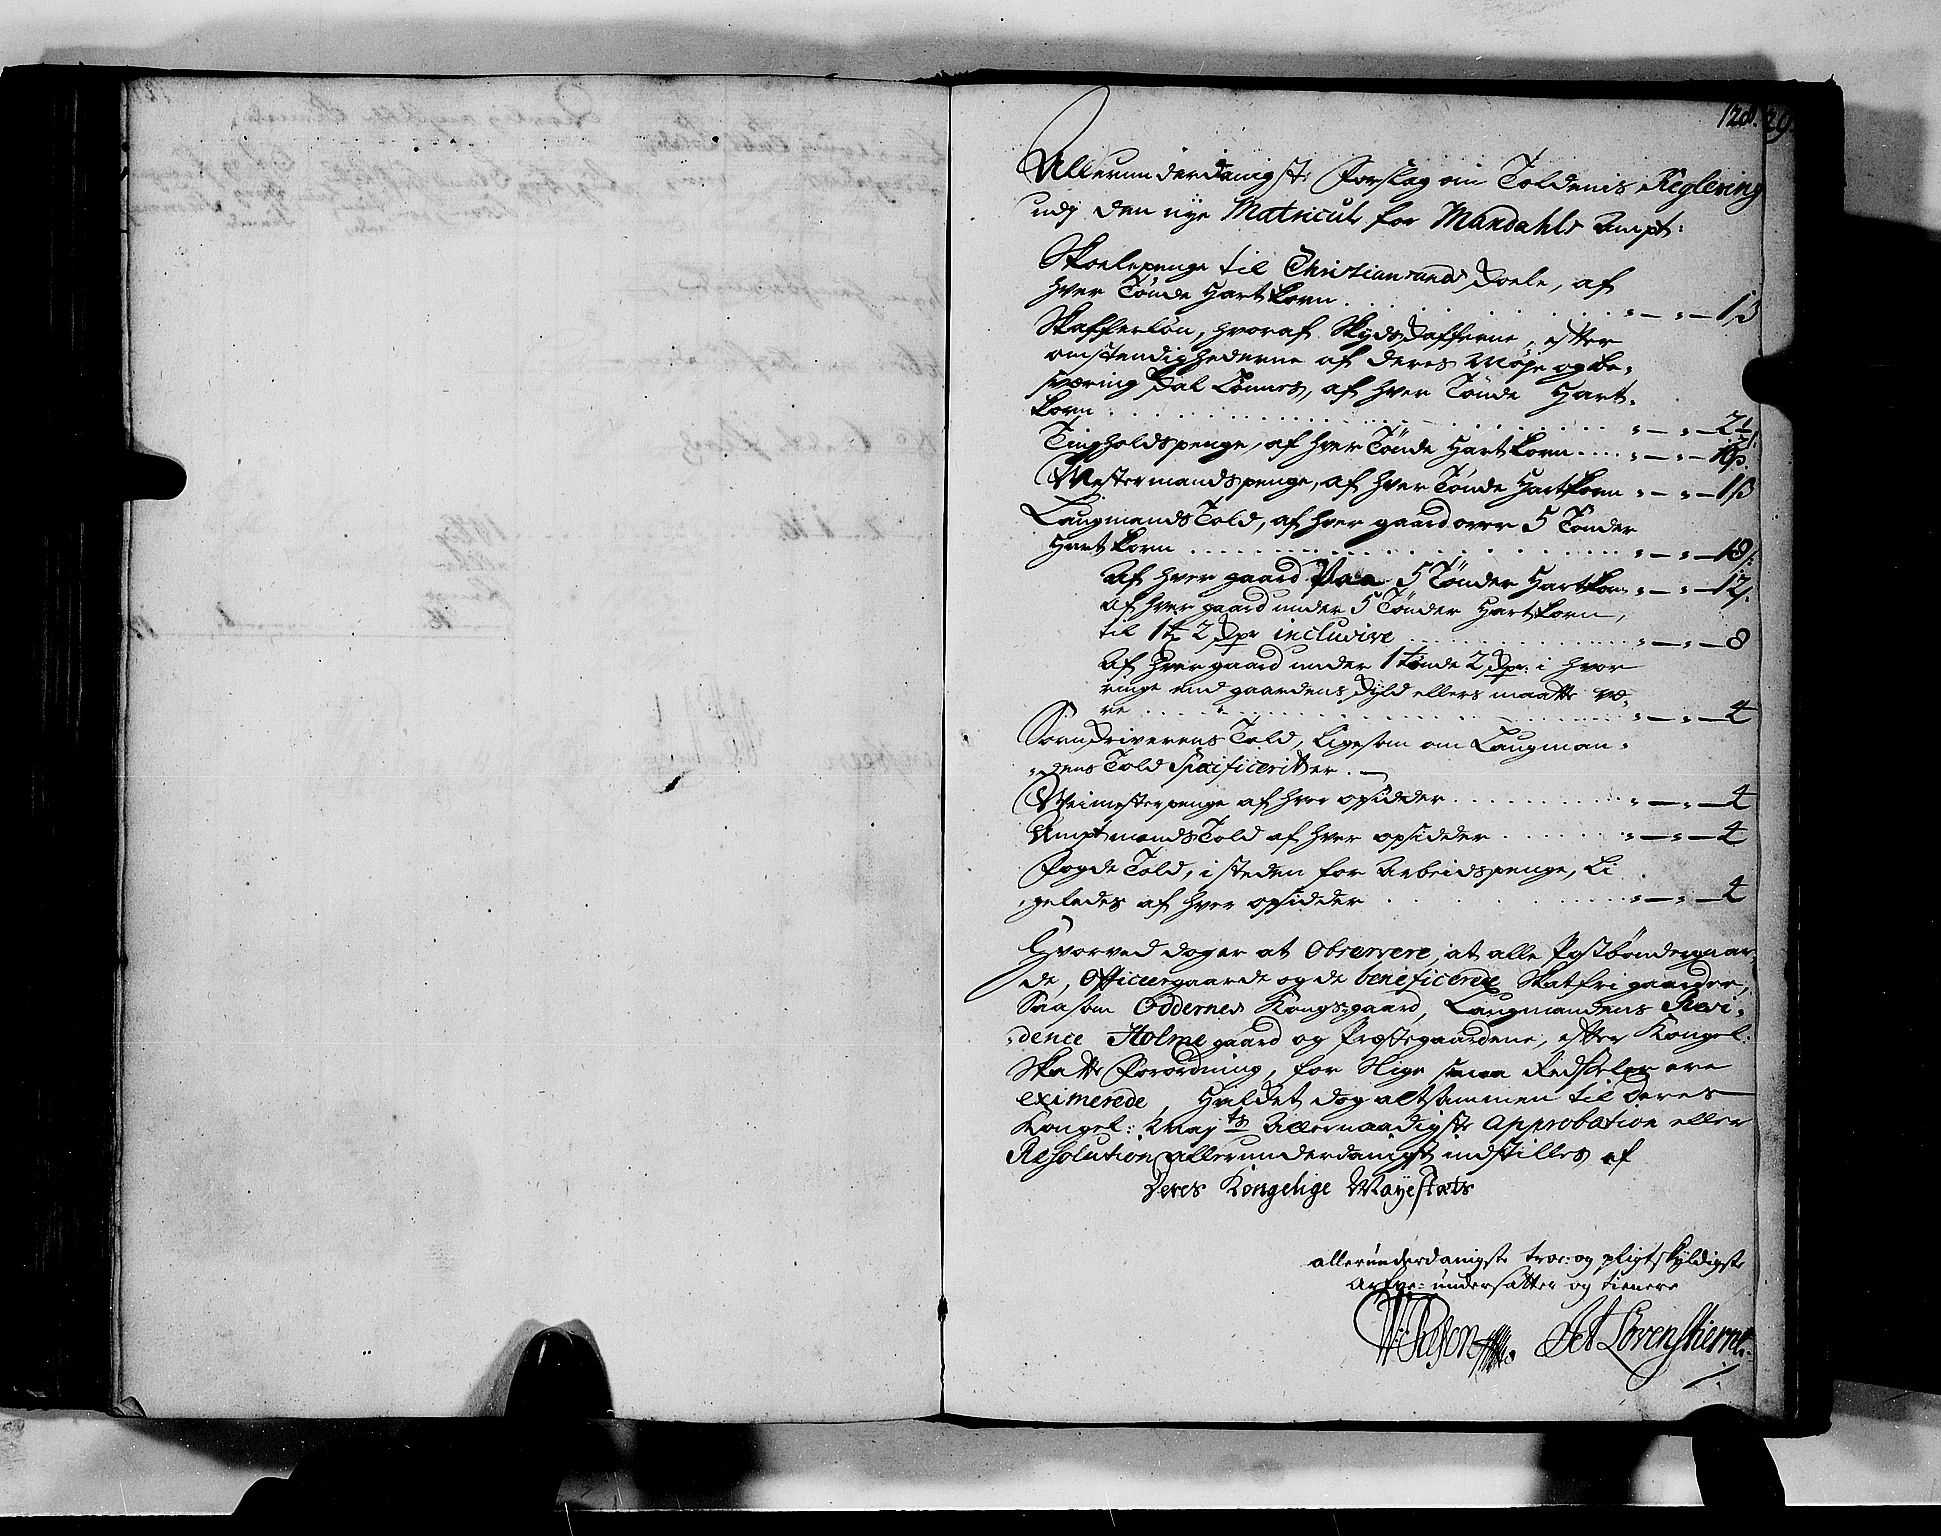 128. 29.
Allerunderdanigste Forslag om Toldens Reglering
udj den nye Matricul for Mandahls Ampt:
Skoelepenge til Christiansands Scoele, af
hver Tønde Hartkorn . . . „ — „ — 1 β
Skafferløn, hvoraf Skydsskafferne, efter
omstendighederne af deres Møje og be-
sværing skal Lønnes, af hver Tønde Hart-
korn . . . „ — „ — 2½
Tingholdspenge, af hver Tønde Hartkorn . . . „ — „ —
Mestermandspenge, af hver Tønde Hartkorn „ — „ — 1 β
Laugmands Told, af hver gaard over 5 Tønder
Hartkorn . . . „ — „ — 18/:
Af hver gaard Paa 5 Tønder Hartkorn „ — „ — 12/:
af hver gaard under 5 Tønder Hartkorn,
til 1 t. 2 Spr inclusive . . . „ — „ — 8
Af hver gaard under 1 tønde 2 Spr: i hvor
ringe end gaardens Skyld ellers maatte væ-
re . . . „ — „ — 4
Sorndriverens Told, Ligesom om Laugman-
dens Told Specificeritt er. —
Weimesterpenge af hver opsidder . . . „ — „ — 4
AmptmandsTold af hver opsidder . . . „ — „ — 4
Fogde Told, i steden for Arbeidspenge, Li
geledes af hver opsidder . . . „ — „ — 4
Hvorved dog er at Observere, at alle Postbøndergaar-
de, Officeergaarde og de beneficerede Skatfri gaarder,
Saasom Oddernes Kongsgaard, Laugmandens Resi-
dence Holme gaard og Præstegaardene, efter Kongel:
Skatte Forordning, for slige smaa Redseler ere
eximerede, Hvilcket dog altsammen til Deres
Kongel: May:ts Allernaadigste approbation eller
Resolution allerunderdanigst indstilles af
Deres Kongelige Mayestæts
allerunderdanigste troe- og pligtskyldigste
arfve- undersatter og tienere
Lövenskierne